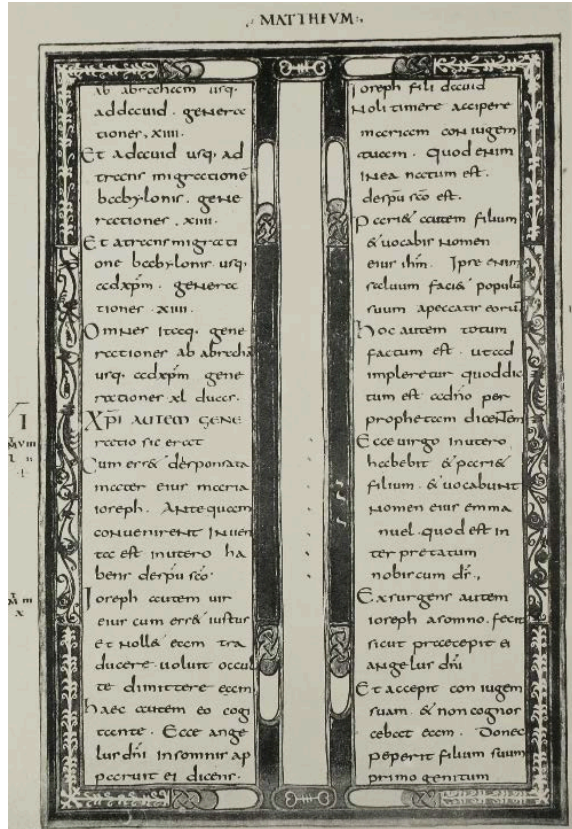 MATTHEVM
ab abraham usq.
addauid. genera
tiones. xiiii.
Et adauid usq. ad
trans migrationē
babylonis. gene
rationes. xiiii.
Et atransmigrati
one babylonis usq.
adxp̄m. genera
tiones. xiiii.
Omnes itaq. gene
rationes ab abrahā
usq. adxp̄m gene
rationes xl duae.
Xp̄i autem gene
ratio sic erat
Cum ess& desponsata
mater eius maria
ioseph. Antequam
convenirent inuen
ta est inutero ha
bens desp̄u sc̄o.
Ioseph autem uir
eius cum ess& iustus
et noll& eam tra
ducere. uoluit occul
te dimittere eam
haec autem eo cogi
tante. Ecce ange
lus dn̄i insomnis ap
paruit ei dicens.
Ioseph fili dauid
Noli timere accipere
mariam coniugem
tuam. Quod enim
inea natum est.
desp̄u sc̄o est.
Pari& autem filium
& uocabis nomen
eius ih̄m. Ipse enim
saluum faci& populū
suum apeccatis eorum
Hoc autem totum
factum est. utad
impleretur quoddic
tum est adn̄o per
prophetam dicentem
Ecce uirgo inutero
habebit & pari&
filium. & uocabunt
nomen eius emma
nuel. quod est in
ter pretatum
nobiscum ds.,
Exsurgens autem
ioseph asomno. fecit
sicut praecepit ei
angelus dn̄i
Et accepit coniugem
suam. & non cognos
cebat eam. Donec
peperit filium suum
primo genitum